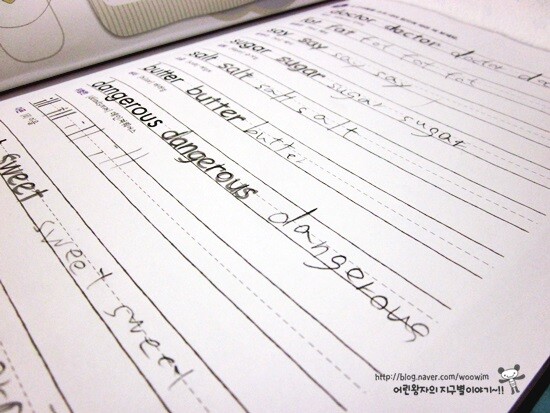 doctor doctor doctor
fat fat fat fat fat
say say say say
sugar sugar sugar sugar
salt salt salt salt
butter butter butter
dangerous dangerous dangerous
sweet sweet sweet
http://blog.naver.com/woowim
어린왕자의 지구별이야기~!!